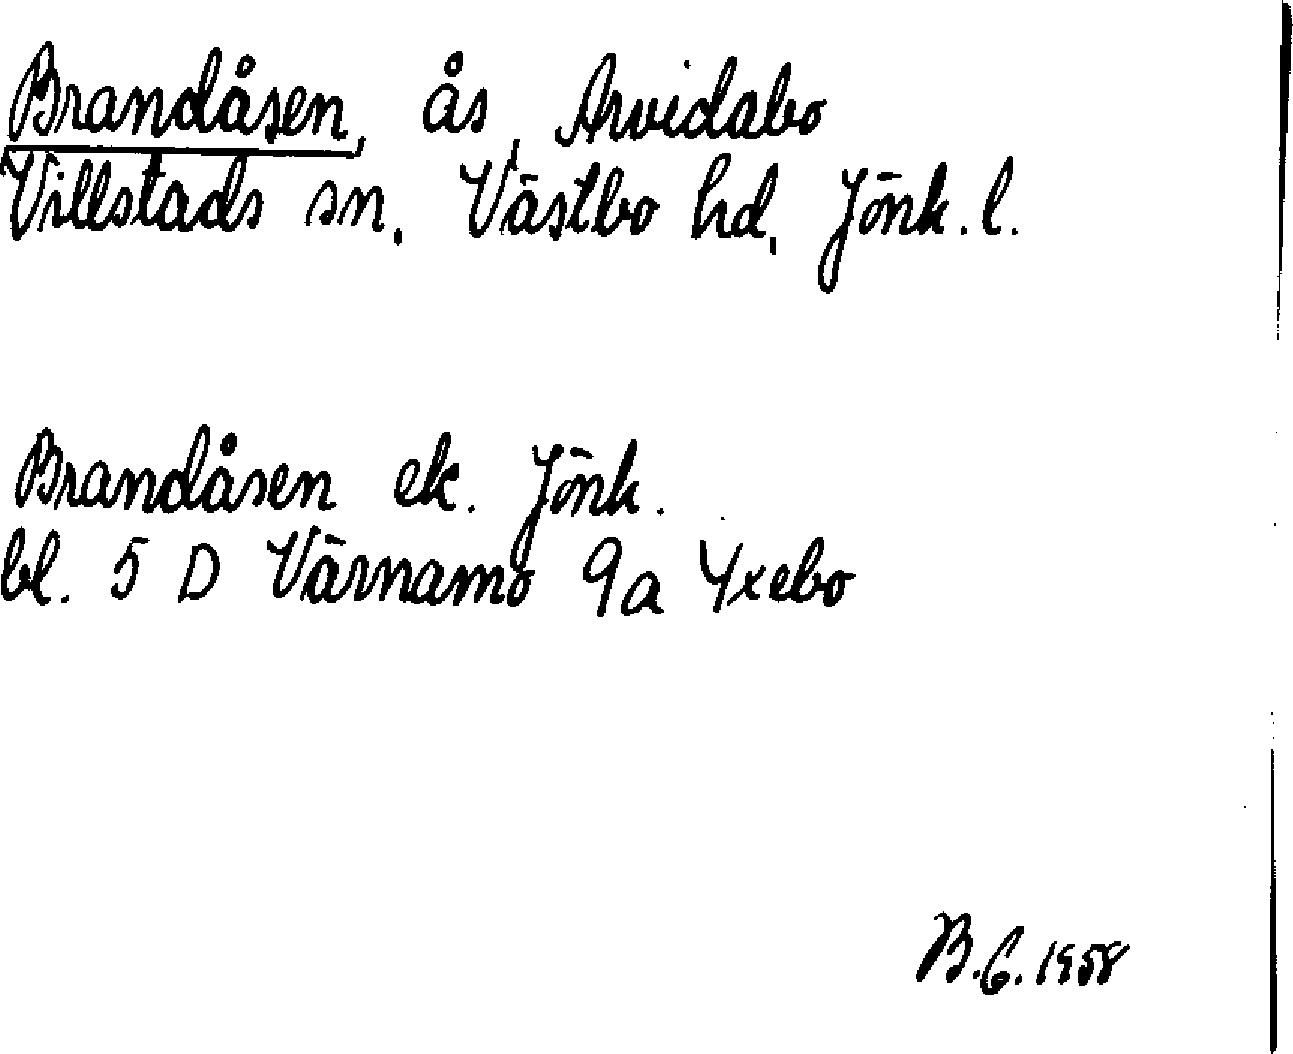 Brandåsen, ås, Arvidabo
Villstads sn, Västbo hd, Jönk. l.
Brandåsen ek. Jönk.
bl. 5 D Värnamo 9a Yxebo
B.G. 1958